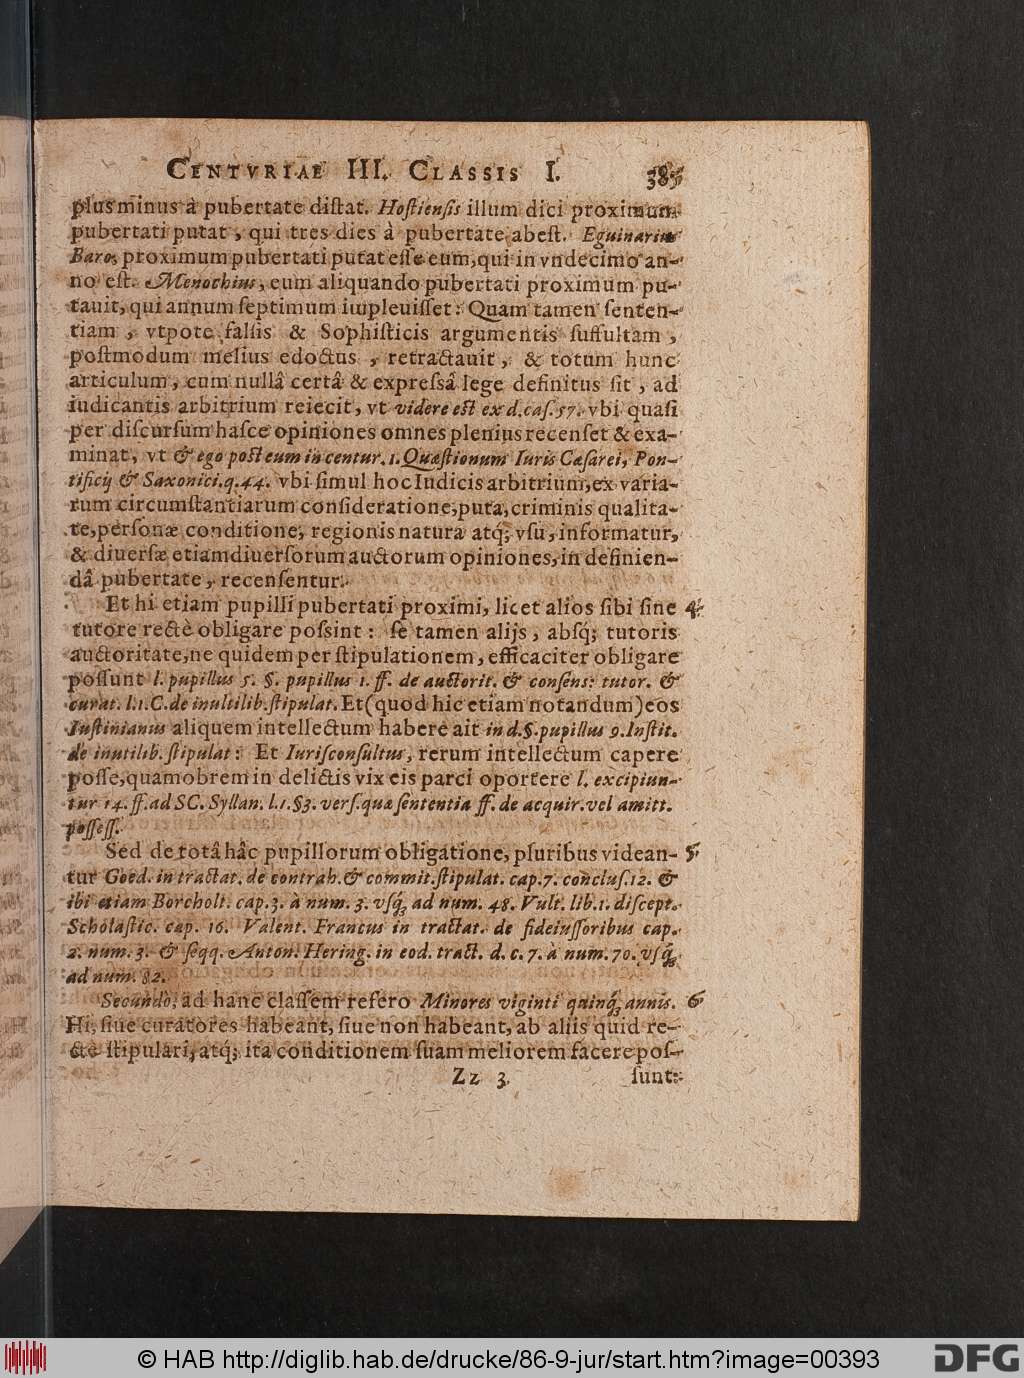 CENTVRIAE III. CLASSIS I. 385
plus minus à pubertate diſtat. Hoſtienſis illum dici proximum
pubertati putat, qui tres dies à pubertate abeſt. Eguinarius
Baro, proximum pubertati putat eſſe eum, qui in vndecimo an-
no eſt. Menochius, eum aliquando pubertati proximum pu-
tauit, qui annum ſeptimum impleuiſſet: Quam tamen ſenten-
tiam, vtpote falſis & Sophiſticis argumentis ſuffultam,
poſtmodum melius edoctus, retractauit, & totum hunc
articulum, cum nullâ certâ & expreſsâ lege definitus ſit, ad
iudicantis arbitrium reiecit, vt videre eſt ex d. caſ. 57. vbi quaſi
per diſcurſum haſce opiniones omnes plenius recenſet & exa-
minat, vt & ego poſt eum in centur. 1. Quæſtionum Iuris Cæſarei, Pon-
tificij & Saxonici. q. 44. vbi ſimul hoc Iudicis arbitrium, ex varia-
rum circumſtantiarum conſideratione, puta, criminis qualita-
te, perſonæ conditione, regionis natura atq; vſu, informatur,
& diuerſæ etiam diuerſorum auctorum opiniones, in definien-
dâ pubertate, recenſentur.
Et hi etiam pupilli pubertati proximi, licet alios ſibi ſine 4
tutore rectè obligare poſsint: ſe tamen alijs, abſq; tutoris
auctoritate, ne quidem per ſtipulationem, efficaciter obligare
poſſunt l. pupillus 5. §. pupillus 1. ff. de auctorit. & conſens: tutor. &
curat. l. 1. C. de inutilib. ſtipulat. Et (quod hic etiam notandum) eos
Iuſtinianus aliquem intellectum habere ait in d. §. pupillus 9. Inſtit.
de inutilib. ſtipulat: Et Iuriſconſultus, rerum intellectum capere
poſſe, quamobrem in delictis vix eis parci oportere l. excipiun-
tur 14. ff. ad SC. Syllan. l. 1. §3. verſ. qua ſententia ff. de acquir. vel amitt.
poſſeſſ.
Sed de totâ hâc pupillorum obligatione, pluribus videan- 5
tur Goed. in tractat. de contrah. & commit. ſtipulat. cap. 7. concluſ. 12. &
ibi etiam Borcholt. cap. 3. à num. 3. vſq; ad num. 48. Vult. lib. 1. diſcept.
Scholaſtic. cap. 16. Valent. Francus in tractat. de fideiuſſoribus cap.
2. num. 3. & ſeqq. Anton. Hering. in eod. tract. d. c. 7. à num. 70. vſq;
ad num. 82.
Secundò, ad hanc claſſem refero Minores viginti quinq; annis. 6
Hi, ſiue curatores habeant, ſiue non habeant, ab aliis quid re-
ctè ſtipulari, atq; ita conditionem ſuam meliorem facere poſ-
Zz 3 ſunt:
© HAB http://diglib.hab.de/drucke/86-9-jur/start.htm?image=00393
DFG